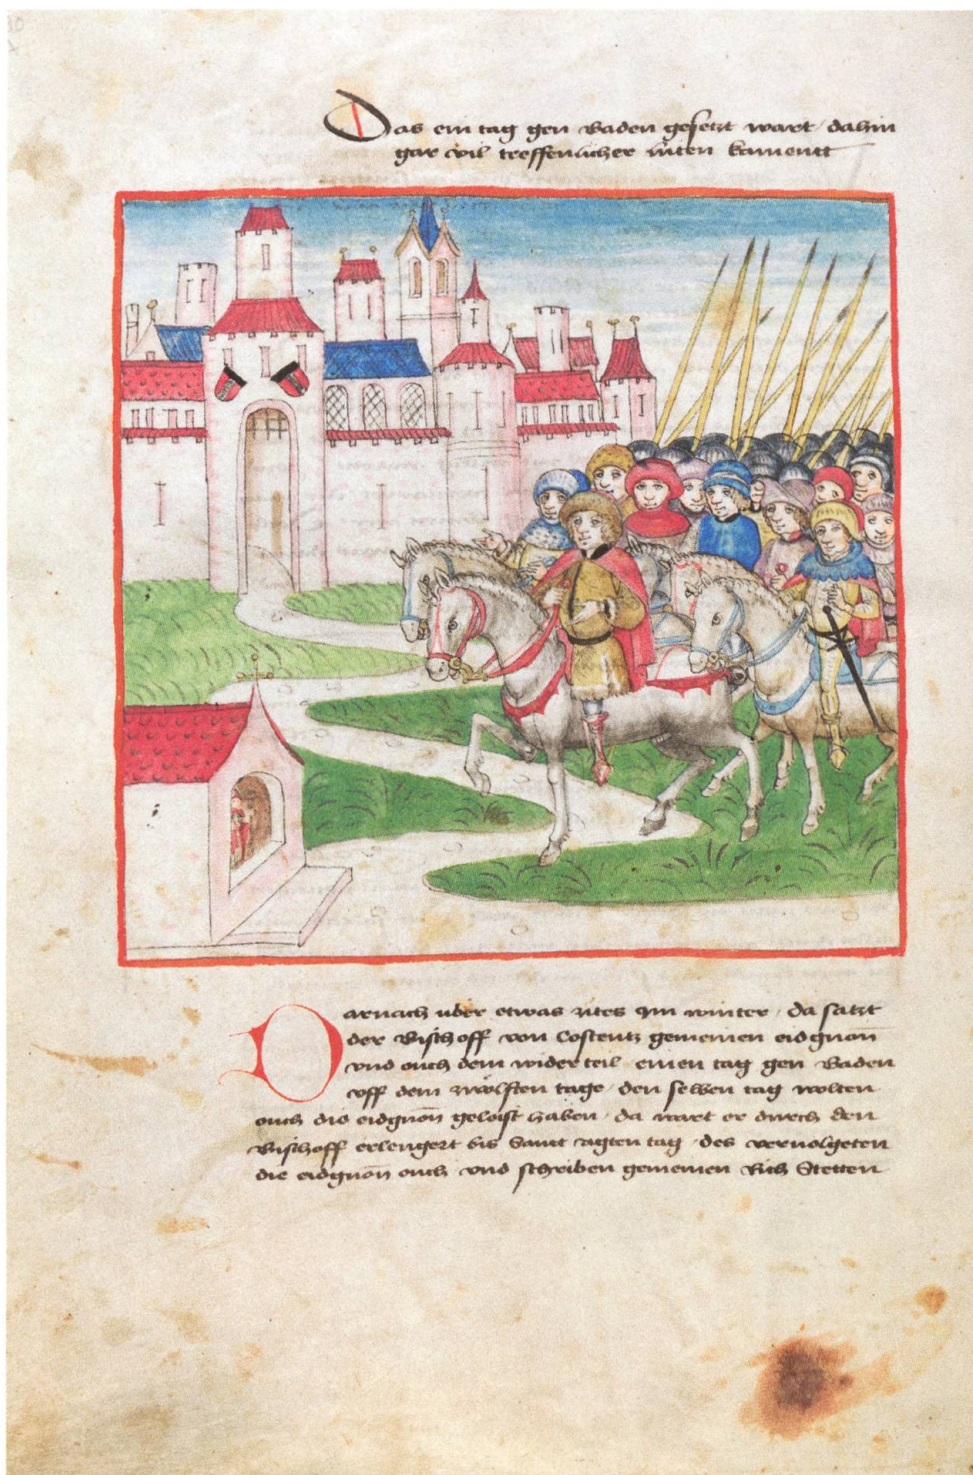 Das ein tag gen Baden gesetzt wart / dahin
gar vil treffenlicher lüten kament
Darnach uber etwas zites Im winter / da satzt
der Bischoff von Costentz gemeinen eidgnon̄
vnd ouch dem widerteil einen tag gen Baden
vff dem zwölften tage / den selben tag wolten
ouch die eidgnon̄ geloist haben / da wart er durch den
Bischoff erlengert bis Sannt agten tag / des vervolgeten
die eidgnon̄ ouch vnd schreiben gemeinen Rich Stetten